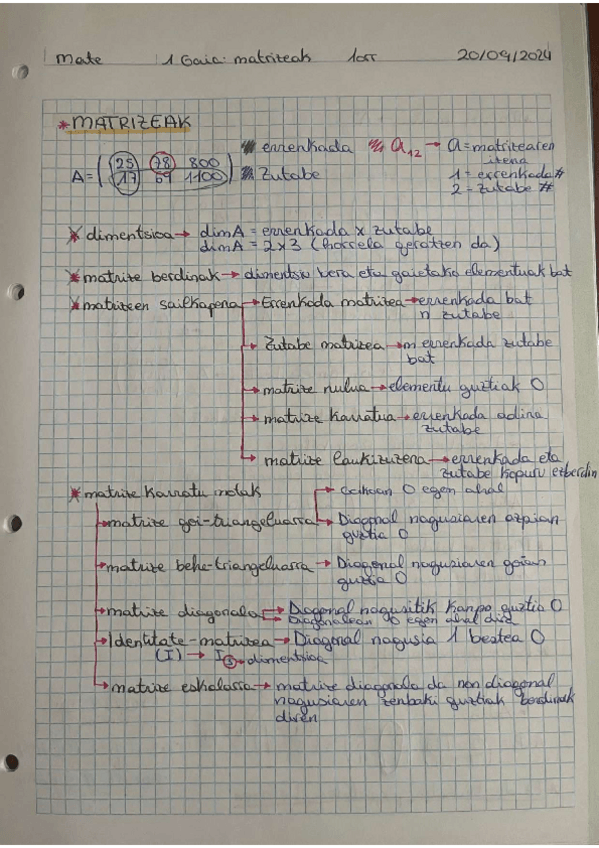 Mate 1 Gaia: matrizeak 1orr 20/09/2024
*MATRIZEAK
errenkada a12 → a = matrizearen
izena
A = ( 25 78 800
17 69 1100 ) Zutabe 1 = errenkada #
2 = zutabe #
* dimentsioa → dimA = errenkada x zutabe
dimA = 2x3 (horrela geratzen da)
* matrize berdinak → dimentsio bera eta gaietako elementuak bat
* matrizeen sailkapena → Errenkada matrizea → errenkada bat
n zutabe
→ Zutabe matrizea → m errenkada zutabe
bat
→ matrize nulua → elementu guztiak 0
→ matrize karratua → errenkada adina
zutabe
→ matrize laukizuzena → errenkada eta
zutabe kopuru ezberdin
* matrize karratu motak → 0 egon ahal
→ matrize goi-triangeluarra → Diagonal nagusiaren azpian
guztia 0
→ matrize behe-triangeluarra → Diagonal nagusiaren goian
guztia 0
→ matrize diagonala → Diagonal nagusitik kanpo guztia 0
→ Diagonalean 0 egon ahal dira
→ Identitate-matrizea → Diagonal nagusia 1 bestea 0
(I) → I3 → dimentsioa
→ matrize eskalarra → matrize diagonala da non diagonal
nagusiaren zenbaki guztiak berdinak
diren